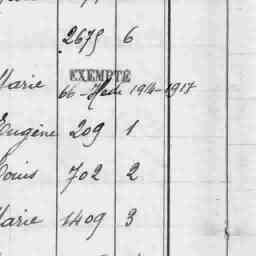 2675 6
EXEMPTÉ
Marie 66 - 1914-1917
Eugène 209 1
Louis 702 2
Marie 1409 3